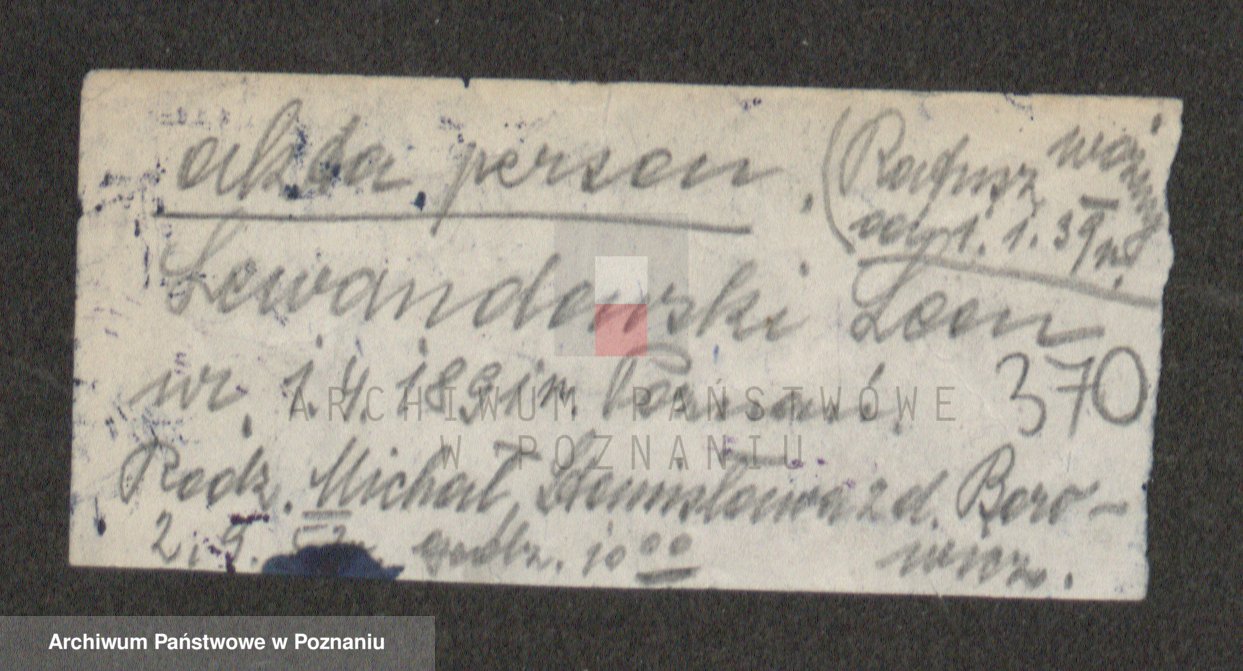 akta person.
(Ratusz woźny
od 1.1.39 n.
Lewandowski Leon
ur. 1.4.1891 r. Poznań.
370
Rodz. Michał Stanisława z d. Boro-
wicz.
2.9. godz. 10 00
ARCHIWUM PAŃSTWOWE
W POZNANIU
Archiwum Państwowe w Poznaniu